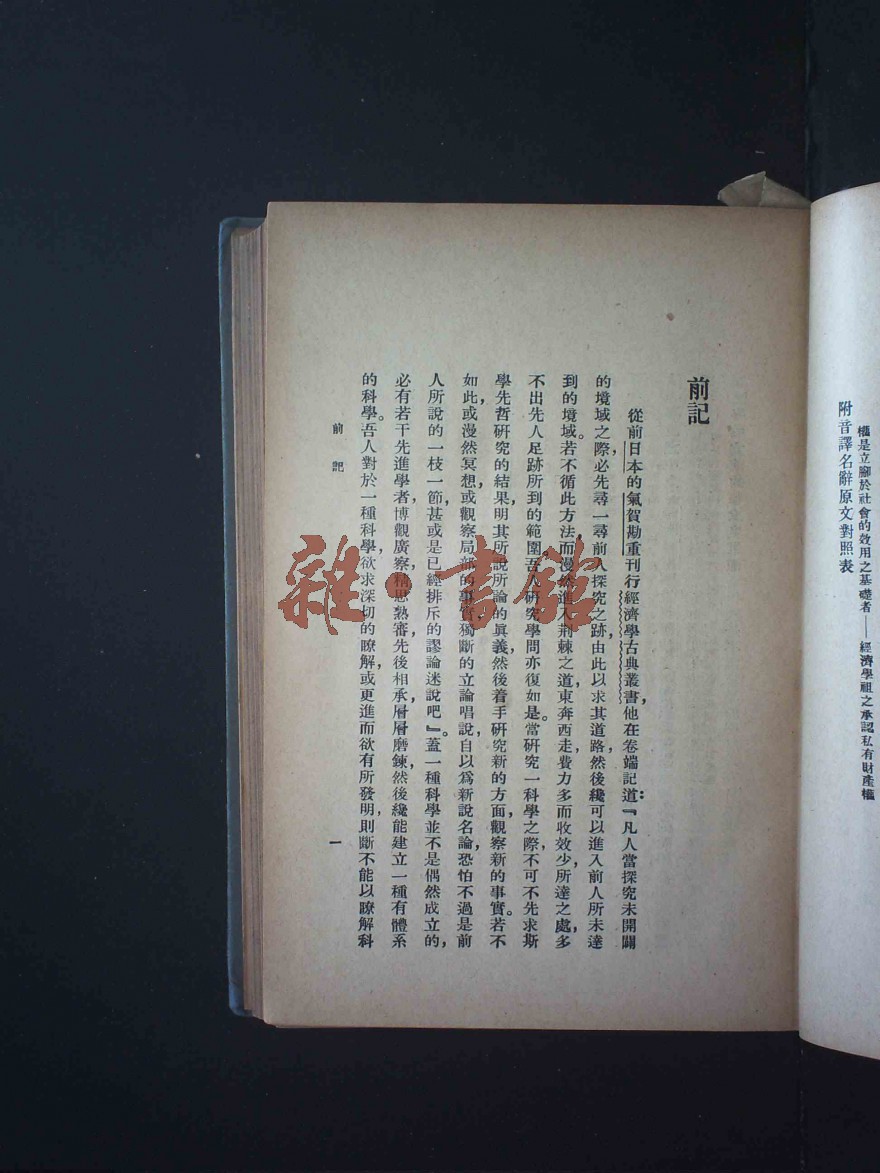 權是立腳於社會的效用之基礎者——經濟學祖之承認私有財產權
附音譯名辭原文對照表
前記
從前日本的氣賀勘重刊行經濟學古典叢書，他在卷端記道：『凡人當探究未開闢
的境域之際，必先尋一尋前人探究之跡，由此以求其道路，然後纔可以進入前人所未達
到的境域。若不循此方法，而漫然進入荆棘之道，東奔西走，費力多而收效少，所達之處，多
不出先人足跡所到的範圍。吾人研究學問亦復如是。當研究一科學之際，不可不先求斯
學先哲研究的結果，明其所說所論的眞義，然後着手研究新的方面，觀察新的事實。若不
如此，或漫然冥想，或觀察局部的事實，獨斷的立論唱說，自以爲新說名論，恐怕不過是前
人所說的一枝一節，甚或是已經排斥的謬論迷說吧』。蓋一種科學並不是偶然成立的，
必有若干先進學者，博觀廣察，精思熟審，先後相承，層層磨鍊，然後纔能建立一種有體系
的科學。吾人對於一種科學，欲求深切的瞭解，或更進而欲有所發明，則斷不能以瞭解科
前記
一
雜·書館